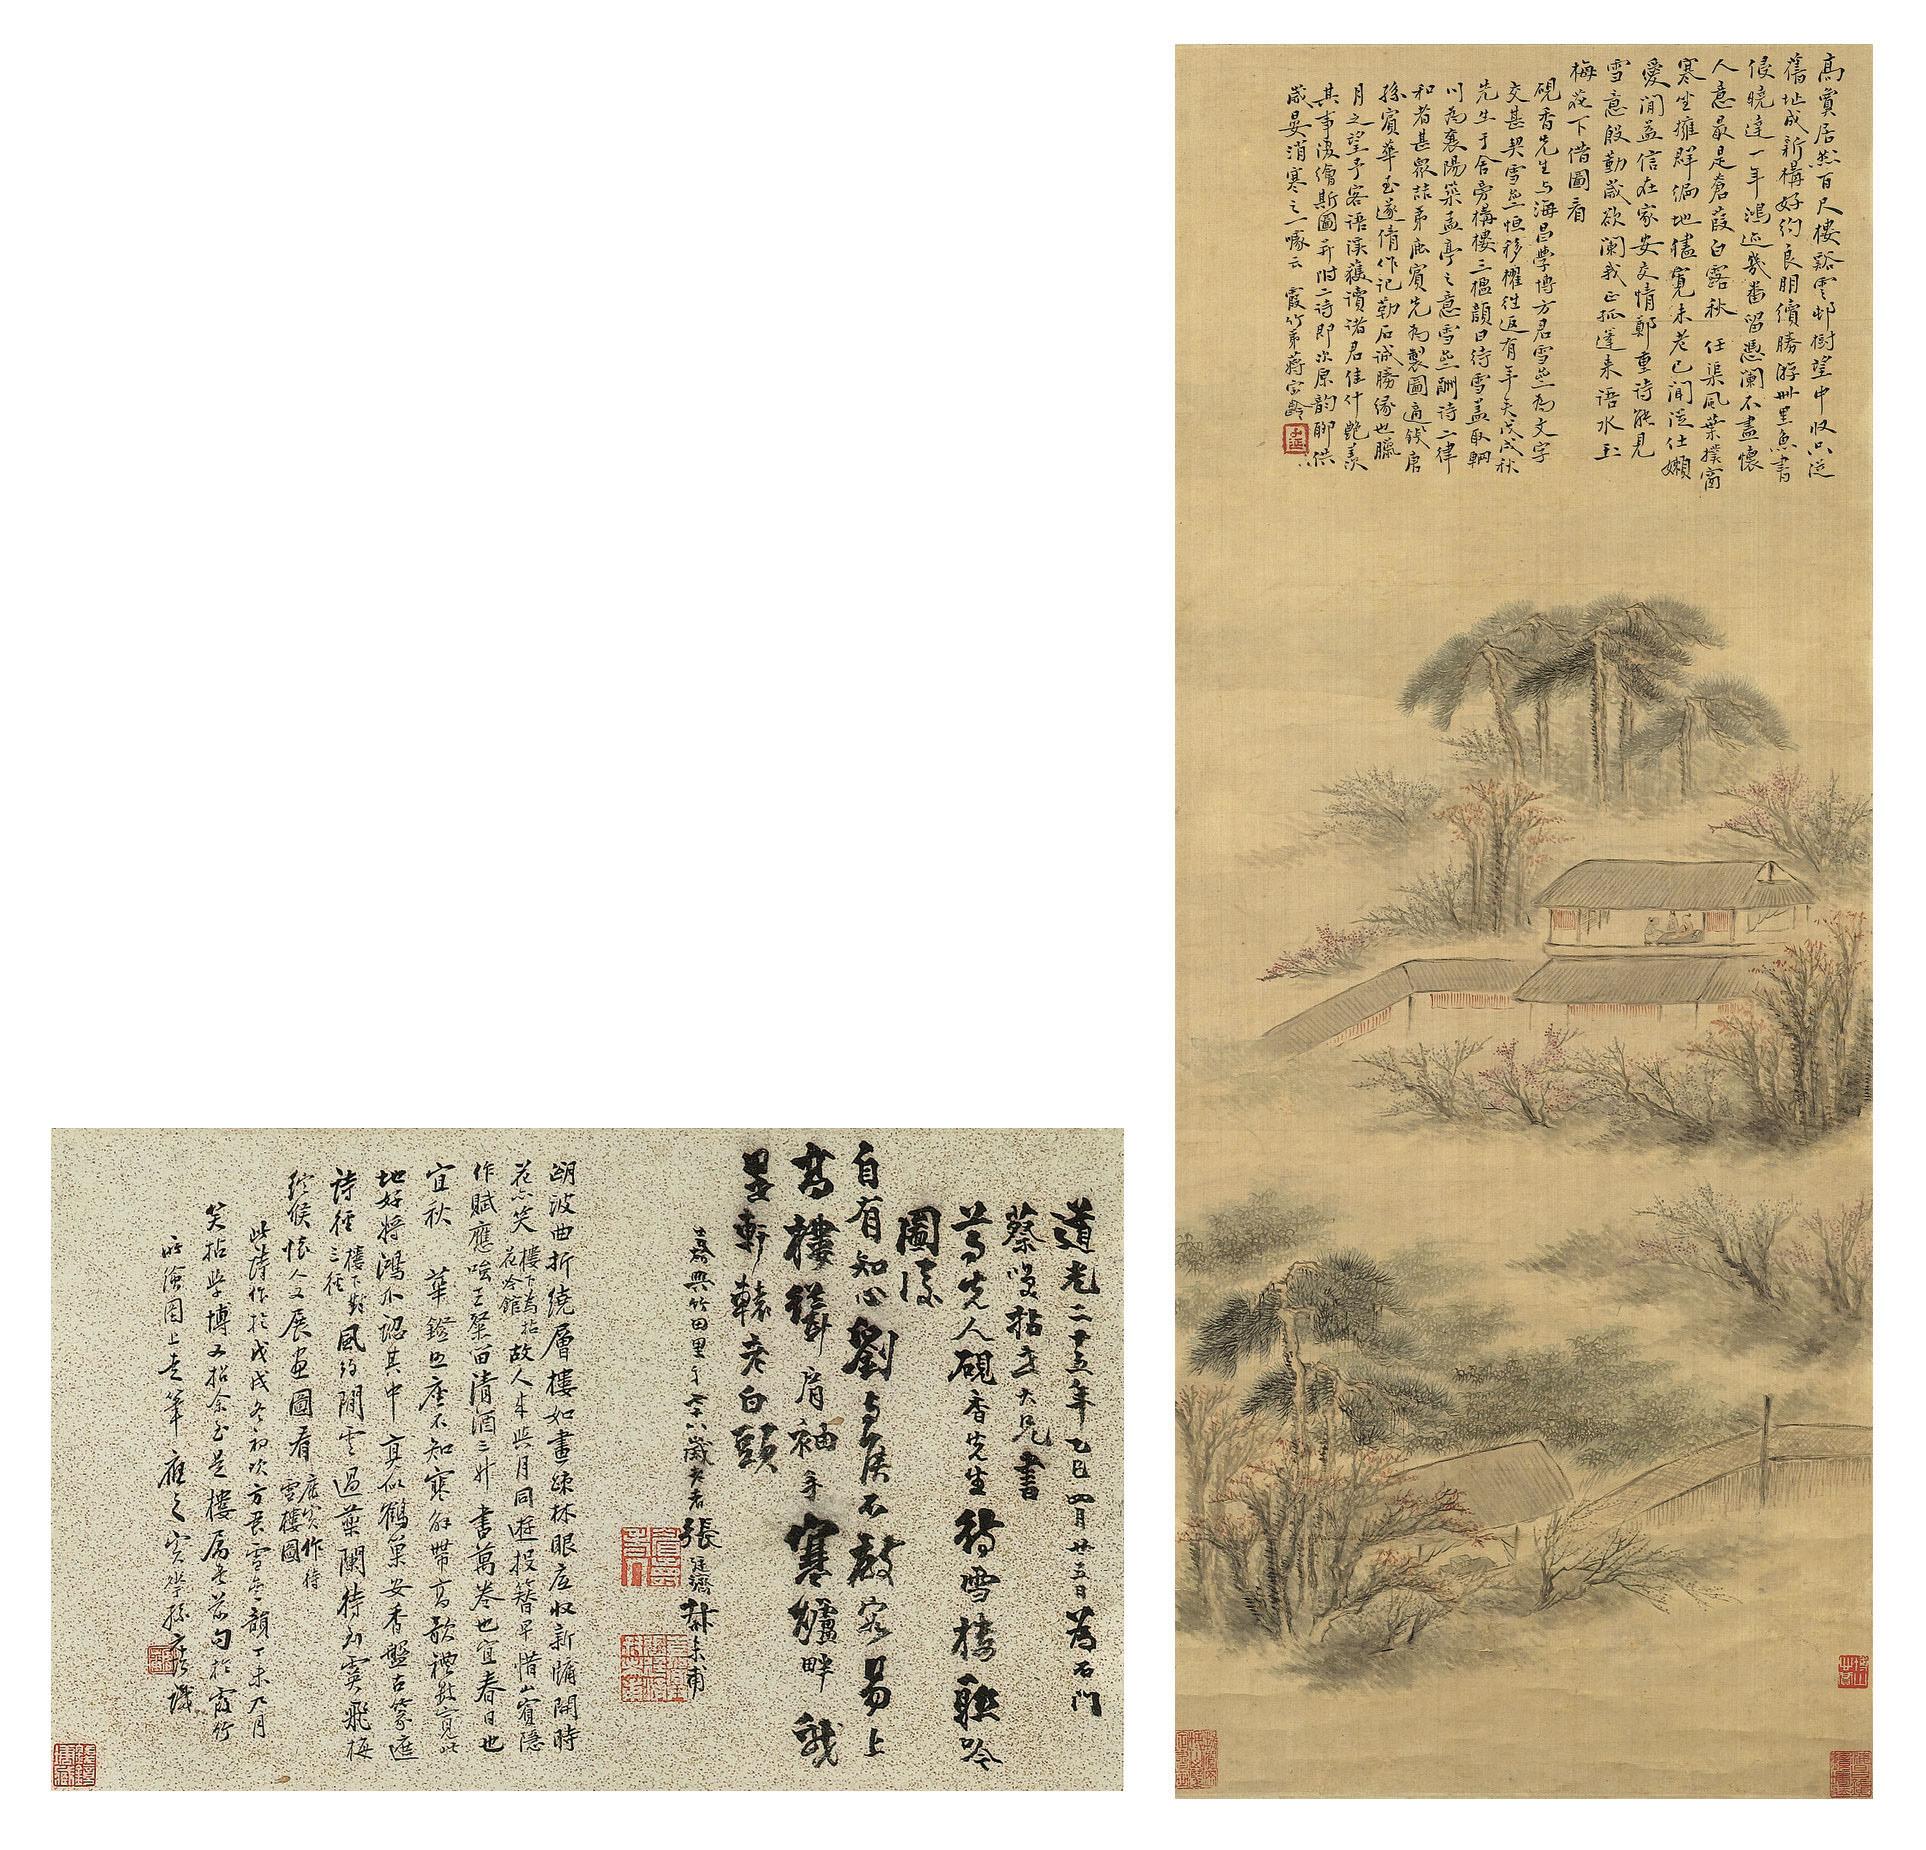 高賞居然百尺樓谿雲邨樹望中收只從
舊址成新構好約良朋續勝游冊里魚書
侵曉達一年鴻迹幾番留憑闌不盡懷
人意最是蒼葭白露秋 任渠風葉撲窗
寒坐擁群編地儘寬未老已聞從仕嬾
愛閒益信在家安交情鄭重詩能見
雪意殷勤歲欲闌我正孤蓬来語水玉
梅花下借圖看
硯香先生与海昌學博方君雪啚為文字
交甚契雪啚恒移櫂往返有年矣戊戌秋
先生于舍旁構樓三楹顔曰待雪蓋取輞
川為襄陽築孟亭之意雪啚酬詩二律
和者甚眾誌弟鹿賓先為製圖適錢唐
孫賓華至遂倩作記勒石誠勝緣也臘
月之望予客語溪獲讀諸君佳什艷羨
其事復繪斯圖并附二詩即次原韵聊供
歲晏消寒之一噱云 霞竹弟蔣宝齡
道光二十五年乙巳四月廿五日為石門
蔡 拈 大兄書
尊先人硯香先生待雪樓聯吟
圖後
自有知心劉与侯不教容易上
高樓 肩袖手寒爐畔
軒轅老白頭
嘉興竹田里 六十八歲老者張廷濟叔未甫
波曲折繞層樓如畫疎林眼底收新牖開時
花亦笑 樓下為拈花吟館 故人来與月同遊投簪早惜山賓隱
作賦應嗤王粲留清酒三升書萬卷也宜春日也
宜秋 華鐙照座不知寒解帶高歌禮數寬此
地好將鴻爪認其中真似鶴巢安香盤古篆遮
詩徑 樓下款三徑 風約閒雲過藥闌待到霙飛梅
綻候懷人又展畫圖看 鹿賓作待雪樓圖
此詩作於戊戌冬初次方君雪啚韻丁未九月
笑拈學博又招余至是樓屬書前句於霞竹
所繪圖上走筆應之 賓華孫 識